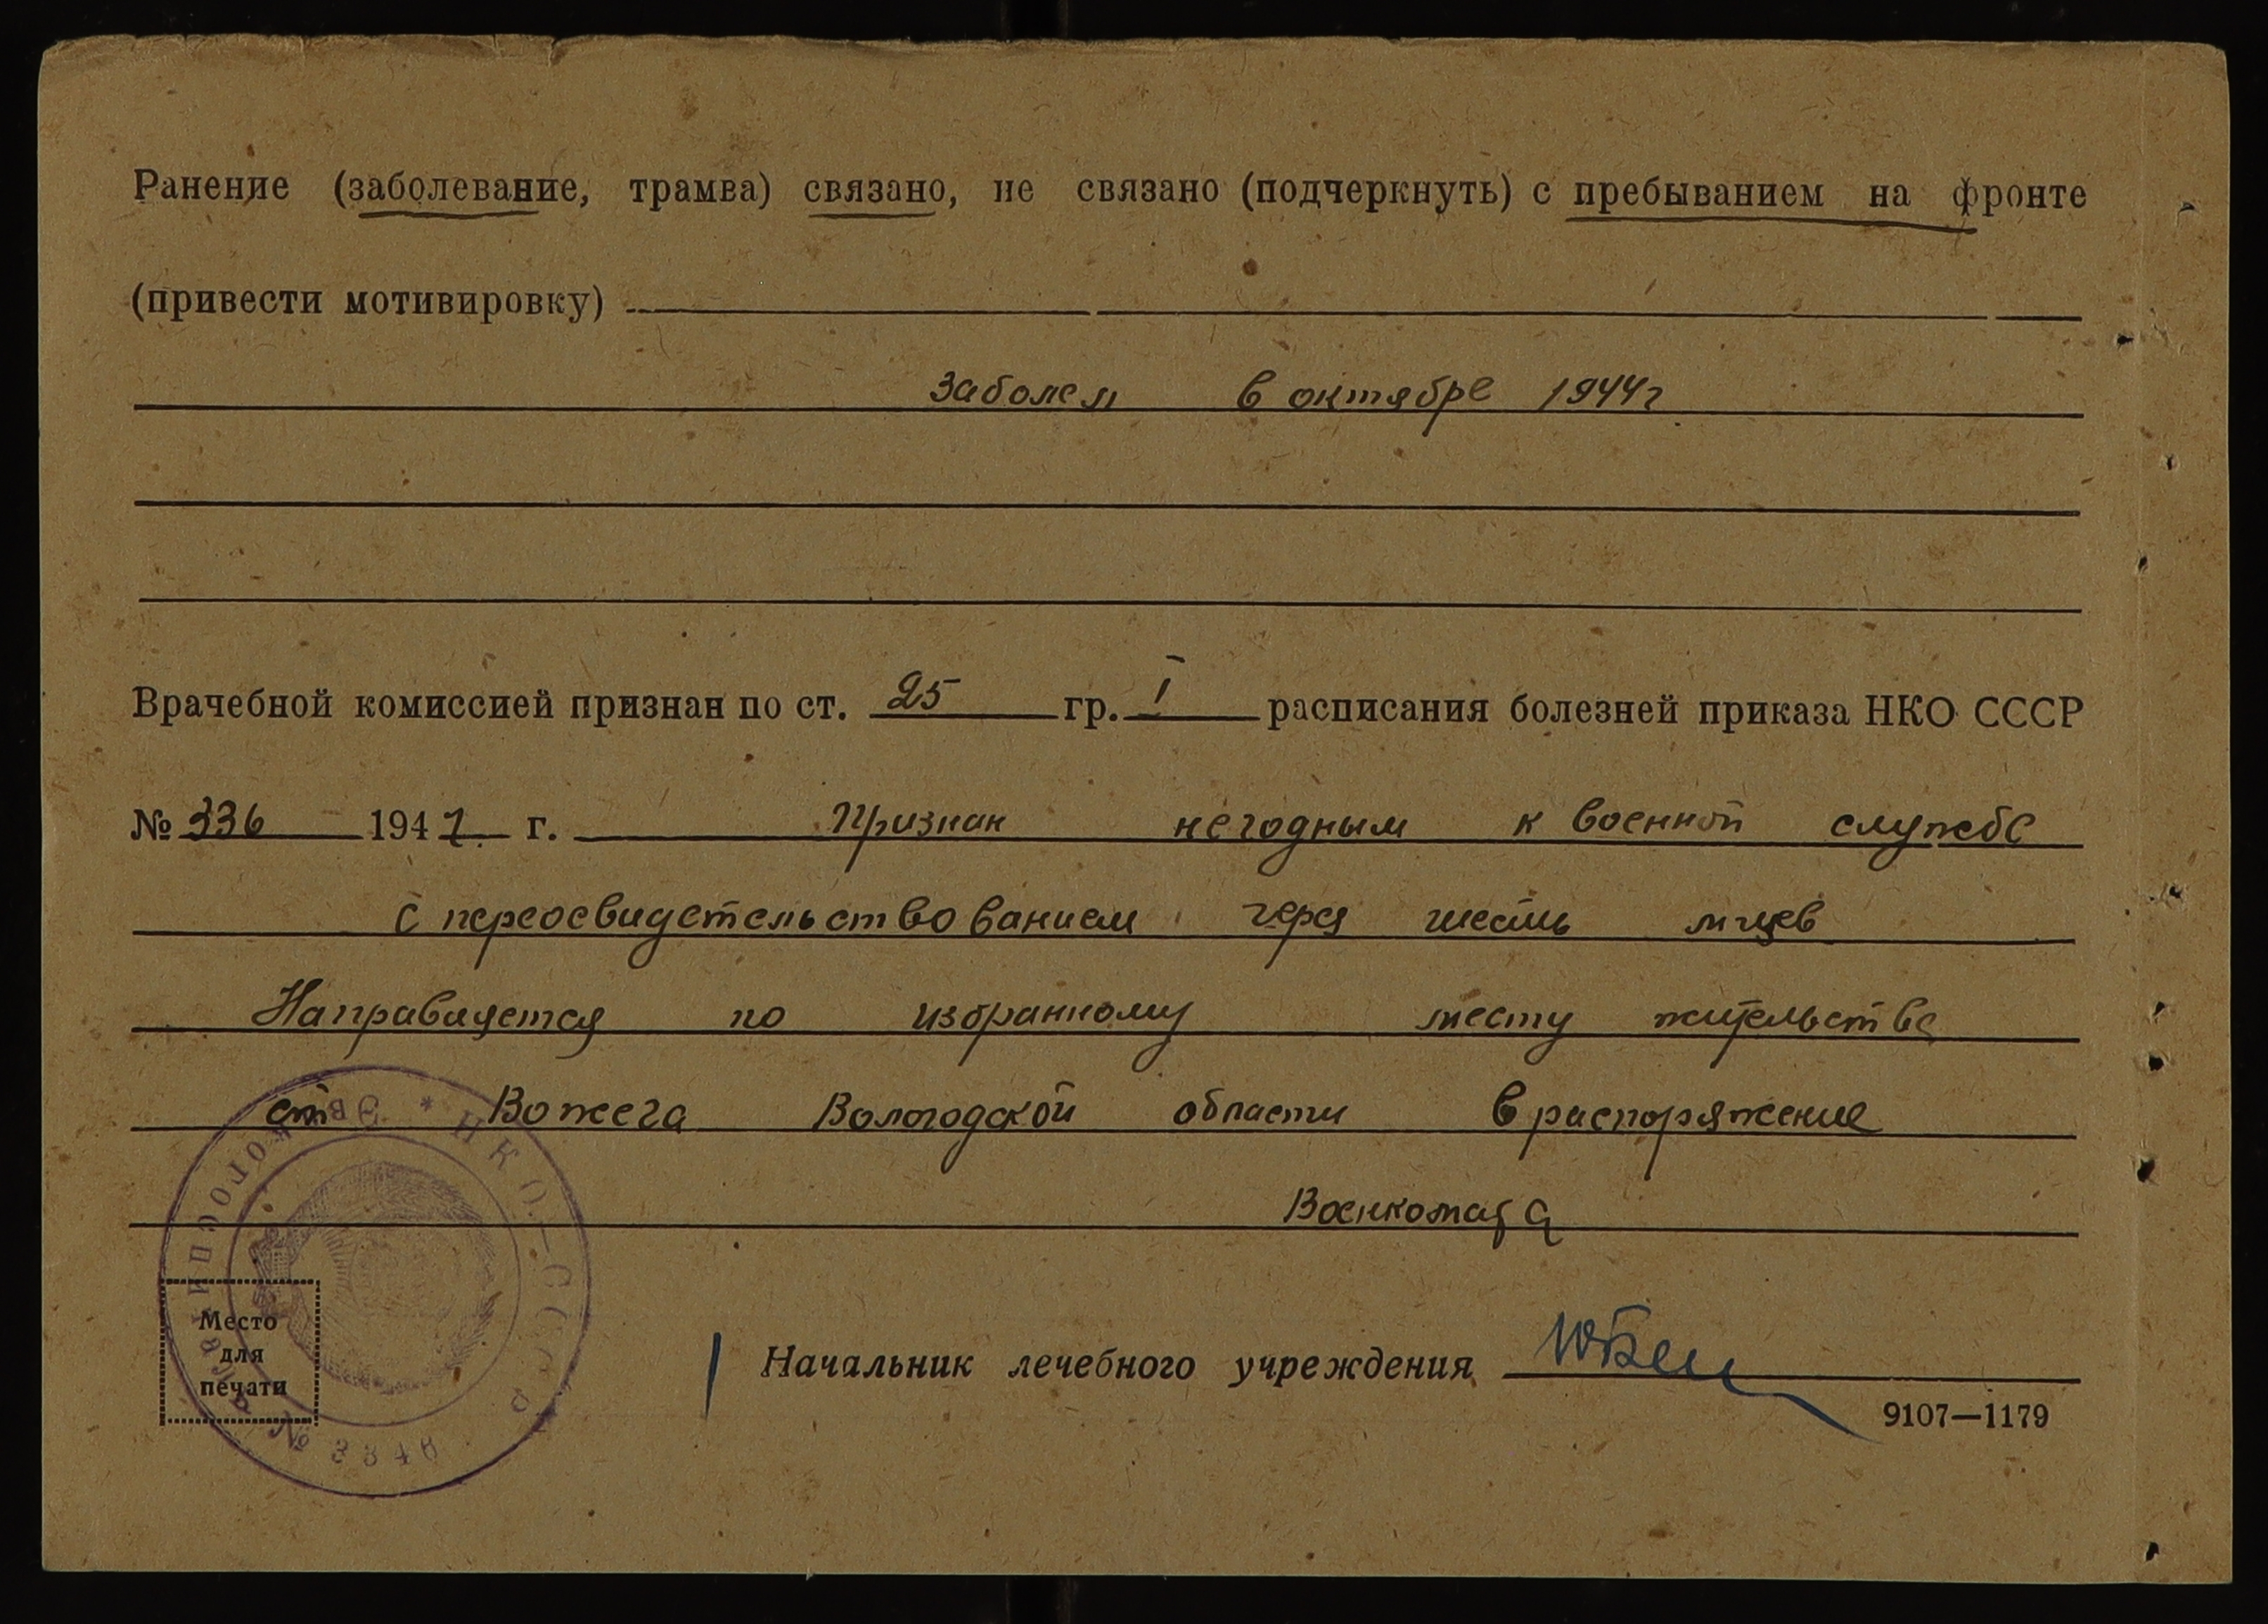 Ранение (заболевание, трамва) связано, не связано (подчеркнуть) с пребыванием на фронте
(привести мотивировку)
Заболел в октябре 1944г
Врачебной комиссией признан по ст. 25 гр. I расписания болезней приказа НКО СССР
№ 336 1942 г. Признан негодным к военной службе
с переосвидетельствованием через шесть м-цев
Направляется по избранному месту жительства
ст Вожега Вологодской области в распоряжение
Военкомата
НКО-СССР * Эвакогоспиталь № 3340
Место
для
печати
Начальник лечебного учреждения
9107—1179